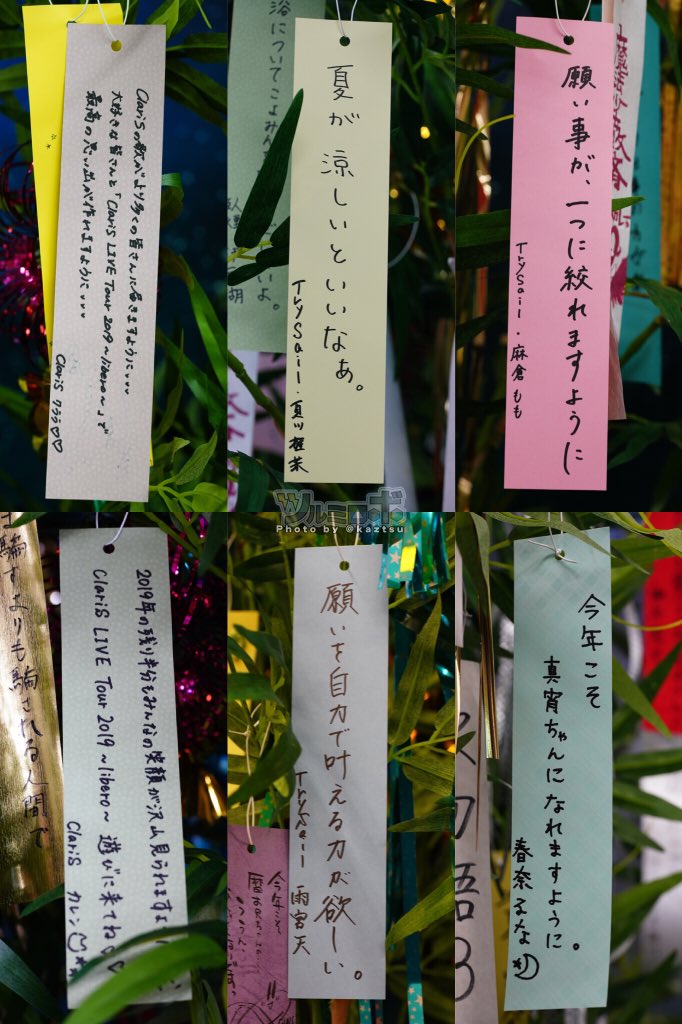 ClariSの歌がより多くの皆さんに届きますように...
大好きな皆さんと「ClariS LIVE Tour 2019 ~libero~」で
最高の思い出が作れますように...
ClariS クララ♡♡
浴についてこよみ
夏が涼しいといいなぁ。
TrySail・夏川椎菜
願い事が、一つに絞れますように
TrySail・麻倉もも
ツルミロボ
Photo by @kaztsu
騙すよりも騙される人間で
2019年の残り半分もみんなの笑顔が沢山見られますよ
ClariS LIVE Tour 2019 ~libero~ 遊びに来てね♡
ClariS カレン
願いを自力で叶える力が欲しい。
TrySail 雨宮天
今年こそ
今年こそ
真宵ちゃんになれますように。
春奈るな